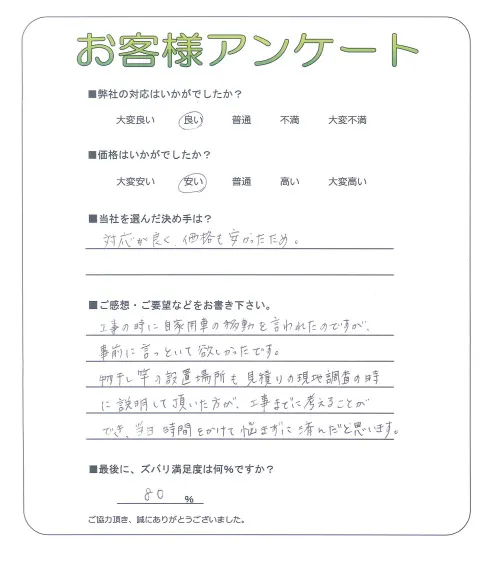 お客様アンケート
■弊社の対応はいかがでしたか？
大変良い 良い 普通 不満 大変不満
■価格はいかがでしたか？
大変安い 安い 普通 高い 大変高い
■当社を選んだ決め手は？
対応が良く、価格も安かったため。
■ご感想・ご要望などをお書き下さい。
工事の時に自家用車の移動を言われたのですが、
事前に言っといて欲しかったです。
物干し竿の設置場所も見積りの現地調査の時
に説明して頂いた方が、工事までに考えることが
でき、当日時間をかけて悩まずに済んだと思います。
■最後に、ズバリ満足度は何％ですか？
80 %
ご協力頂き、誠にありがとうございました。